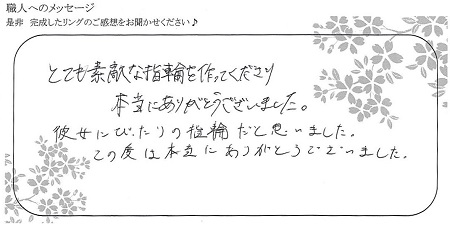 職人へのメッセージ
是非 完成したリングのご感想をお聞かせください♪
とても素敵な指輪を作ってくださり
本当にありがとうございました。
彼女にぴったりの指輪だと思いました。
この度は本当にありがとうございました。